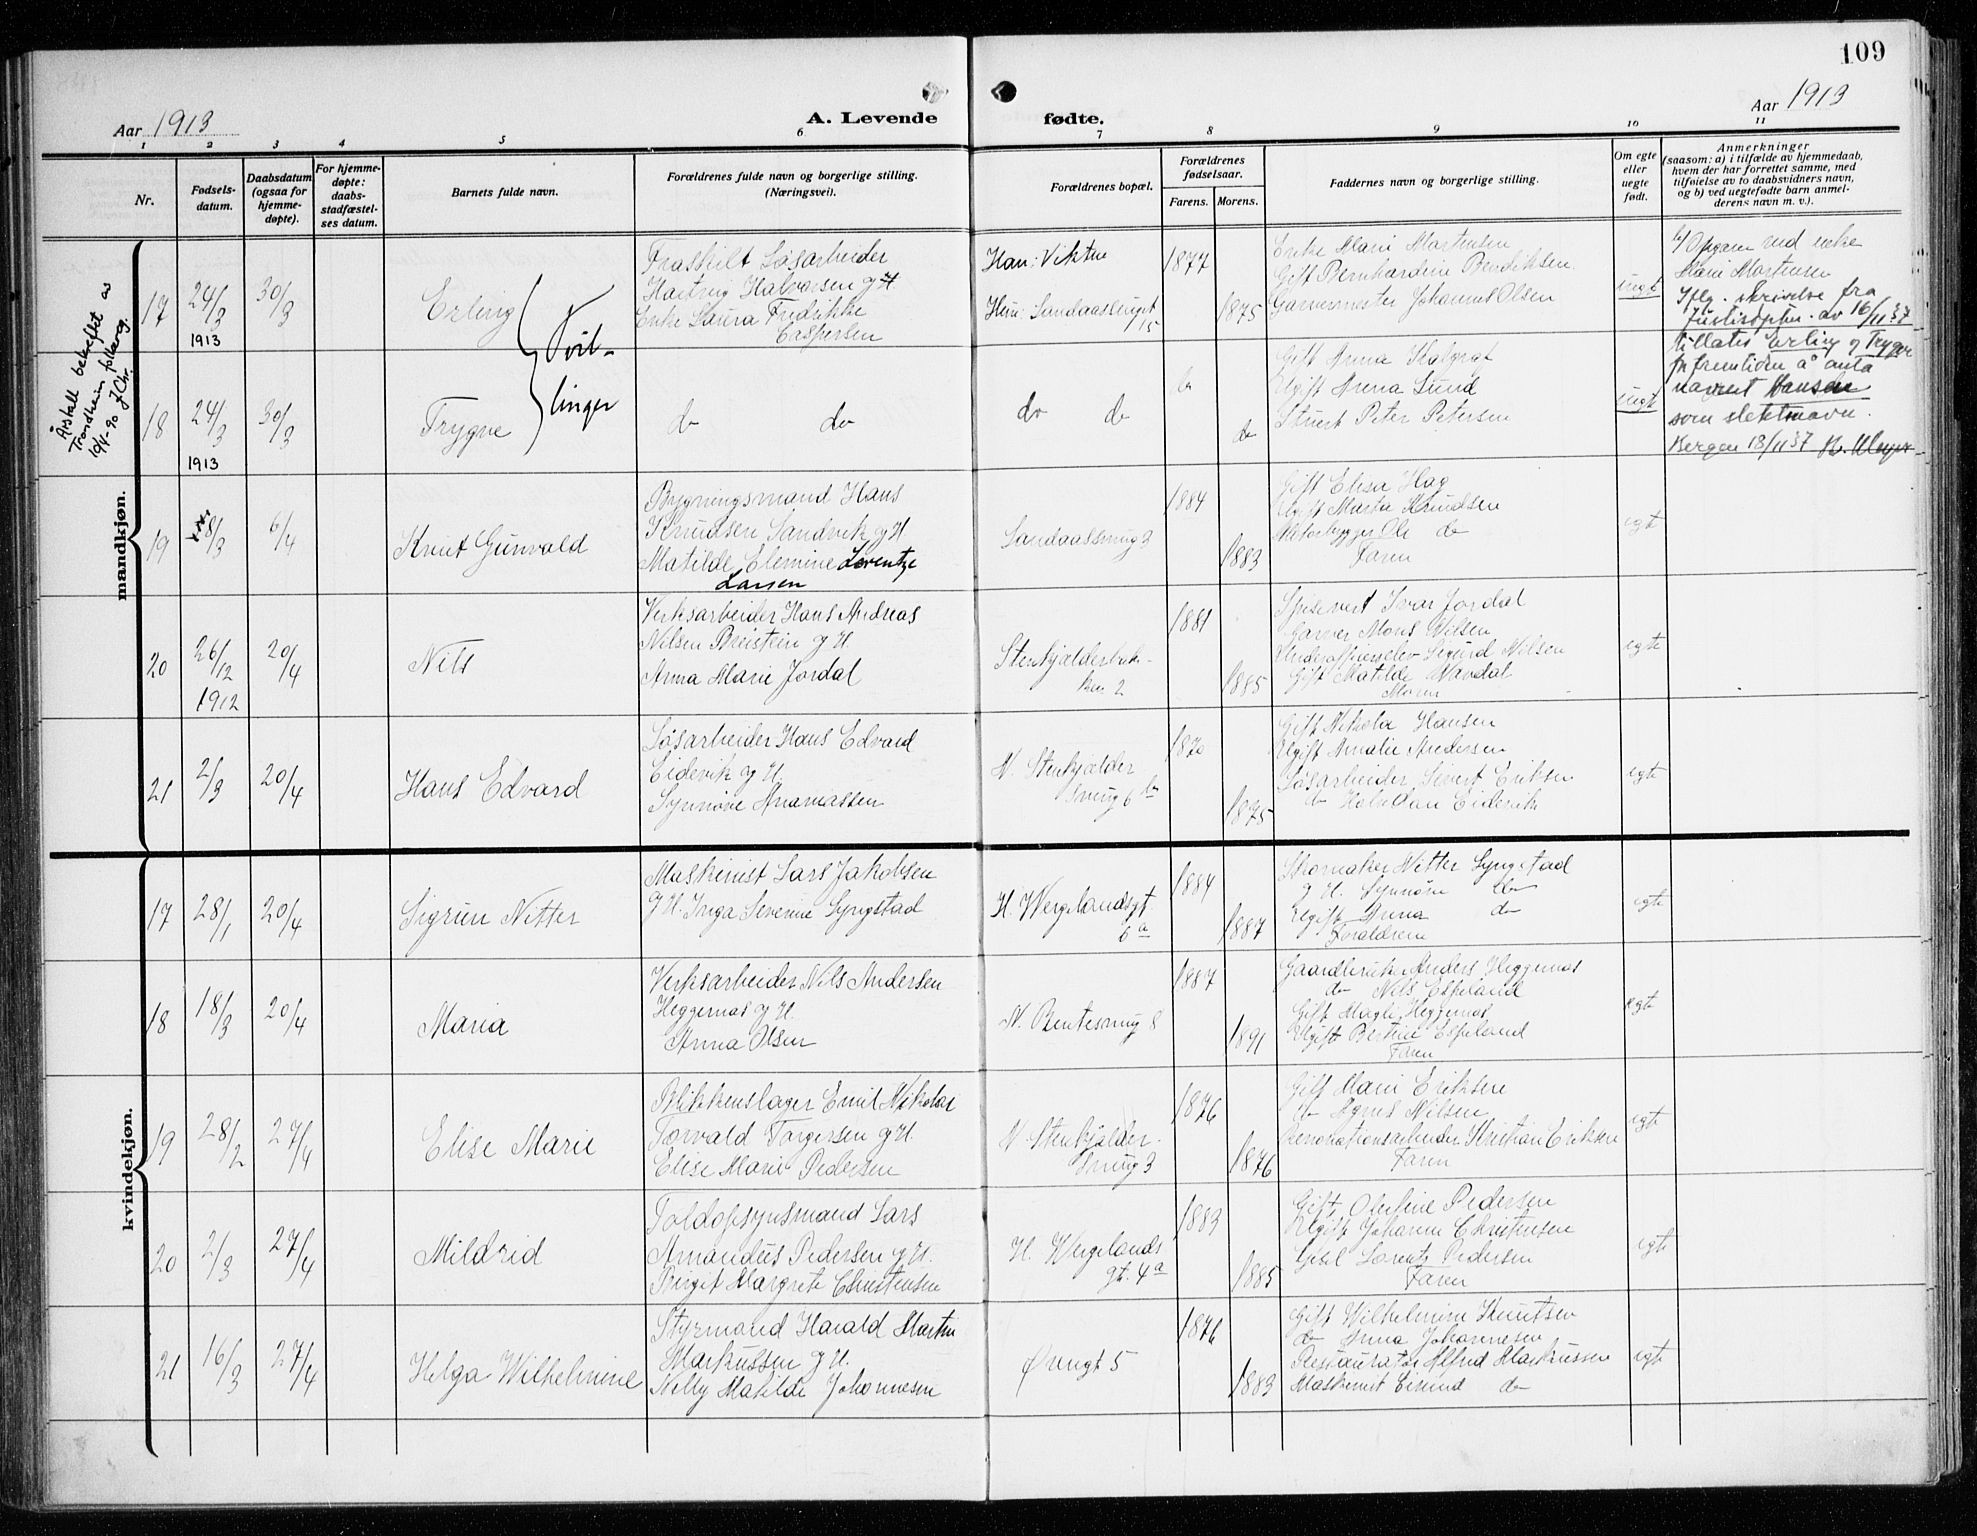 109
Aar 1913
A. Levende fødte.
Aar 1913
1 2 3 4 5 6 7 8 9 10 11
Nr.
Fødsels-
datum.
Daabsdatum
(ogsaa for
hjemme-
døpte).
For hjemme-
døpte:
daabs-
stadfæstel-
ses datum.
Barnets fulde navn.
Forældrenes fulde navn og borgerlige stilling.
(Næringsvei).
Forældrenes bopæl.
Forældrenes
fødselsaar.
Farens. Morens.
Faddernes navn og borgerlige stilling.
Om egte
eller
uegte
født.
Anmerkninger
(saasom: a) i tilfælde av hjemmedaab,
hvem der har forrettet samme, med
tilføielse av to daabsvidners navn,
og b) ved uegtefødte barn anmel-
derens navn m. v.).
Årstall bekreftet av
Trondheim folkereg.
10/4-90 JChr.
mandkjøn.
17
24/3
1913
30/3
Erling
Tvil-
linger
Fraskilt Løsarbeider
Hartvig Halvorsen og
Enke Laura Fredrikke
Caspersen
Han: Viktoe
Hun: Sandaassmuget
15
1877
1875
Enke Marie Martensen
Gift Bernhardine Bendiksen
Garvermester Johannes Olsen
uegt
b/ Opgave ved enke
Marie Martensen
Iflg. skrivelse fra
Justisdptm. av 16/11 37
tillates Erling og Trygve
for fremtiden å anta
navnet Hansen
som slektsnavn.
Bergen 18/11 37
18
24/3
1913
30/3
Trygve
do do
do do
do
do
Gift Anna
Ugift Anna Lund
Stuert Peter Petersen
uegt
19
8/3
6/4
Knut Gunvald
Bygningsmand Hans
Knudsen Sandvik og H
Matilde Elemine Lorentze
Larsen
Sandaassmug 3
1884
1883
Gift Elisa Hag
Ugift Marta Knudsen
Motorbygger Ole do
Faren
egte
20
26/12
1912
20/4
Nils
Verksarbeider Hans Andreas
Nilsen Breistein og H.
Anna Marie Jordal
Stenkjelderbak-
ken 2
1881
1885
Spisevert Ivar Jordal
Garver Mons Nilsen
Underofficerselev Sigurd Nilsen
Gift Matilde Vandal
Moren
egte
21
2/3
20/4
Hans Edvard
Løsarbeider Hans Edvard
Eidevik og H.
Synnøve Ananiassen
N. Stenkjelder
smug 6 b
1870
1875
Gift Nikola Hansen
Ugift Amalie Andersen
Løsarbeider Sivert Eriksen
do Halvdan Eidevik
egte
kvindekjøn.
17
28/1
20/4
Sigrun Nitter
Maskinist Lars Jakobsen
og H. Inga Severine Syngstad
H. Wergelandsgt
6 a
1884
1887
Skomaker Nitter Syngstad
og H. Synnøve do
Ugift Anna do
Forældrene
egte
18
18/3
20/4
Maria
Verksarbeider Nils Andersen
Heggernæs og H.
Anna Olsen
N. Bentesmug 8
1887
1891
Gaardbruker Anders Heggernæs
do Nils Espeland
Gift Magli Heggernæs
Ugift Bertine Espeland
Faren
egte
19
28/2
27/4
Elise Marie
Blikkenslager Emil Nikolai
Torvald Torgersen og H.
Elise Marie Pedersen
N. Stenkjelder-
smug 3
1876
1876
Gift Marie Eriksen
do Agnes Nilsen
Renovationsarbeider Kristian Eriksen
Faren
egte
20
2/3
27/4
Mildrid
Toldopsynsmand Lars
Amandus Pedersen og H.
Birgit Margrete Christensen
H. Wergelands
gt. 4 a
1883
1885
Gift Olufine Pedersen
Ugift Johanne Christensen
Gisel Lorentz Pedersen
Faren
egte
21
16/3
27/4
Helga Wilhelmine
Styrmand Harald Martin
Markussen og H.
Nelly Matilde Johannesen
Øvregt 5
1876
1883
Gift Wilhelmine Knutsen
do Anna Johannesen
Restauratør Alfred Markussen
Maskinist Eivind do
egte